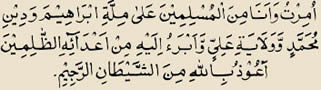 اُمِرْتُ وَاَنَا مِنَ الْمُسْلِمِينَ عَلىٰ مِلَّةِ اِبْرَاهِيمَ وَدِينِ
مُحَمَّدٍ وَوِلَايَةِ عَلِيٍّ وَاَبْرَءُ اِلَيْهِ مِنْ اَعْدَائِهِ الظّٰلِمِينَ
اَعُوْذُ بِاللّٰهِ مِنَ الشَّيْطَانِ الرَّجِيْمِ.